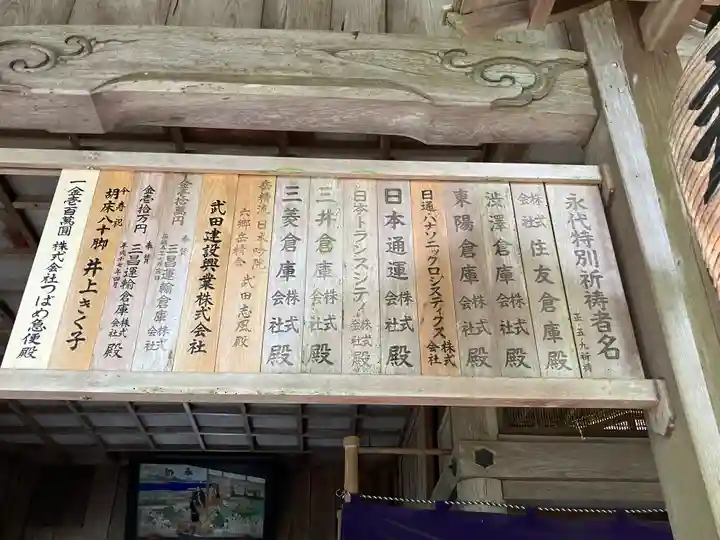 永代特別祈祷者名
正五九祈祷
株式会社 住友倉庫殿
渋澤倉庫 株式会社 殿
東陽倉庫 株式会社 殿
日通・パナソニックロジスティクス 株式会社
日本通運 株式会社 殿
日本トランスシティ 株式会社 殿
三井倉庫 株式会社 殿
三菱倉庫 株式会社 殿
岳精流 日本吟院
六郷岳精会 武田志風殿
武田建設興業株式会社
金壱拾万円 奉賛
三昌運輸倉庫 株式会社
金壱拾万円 奉賛
三昌運輸倉庫 株式会社 殿
傘寿祝
胡床八十脚 井上きく子
一金壱百萬圓 株式会社つばめ急便殿